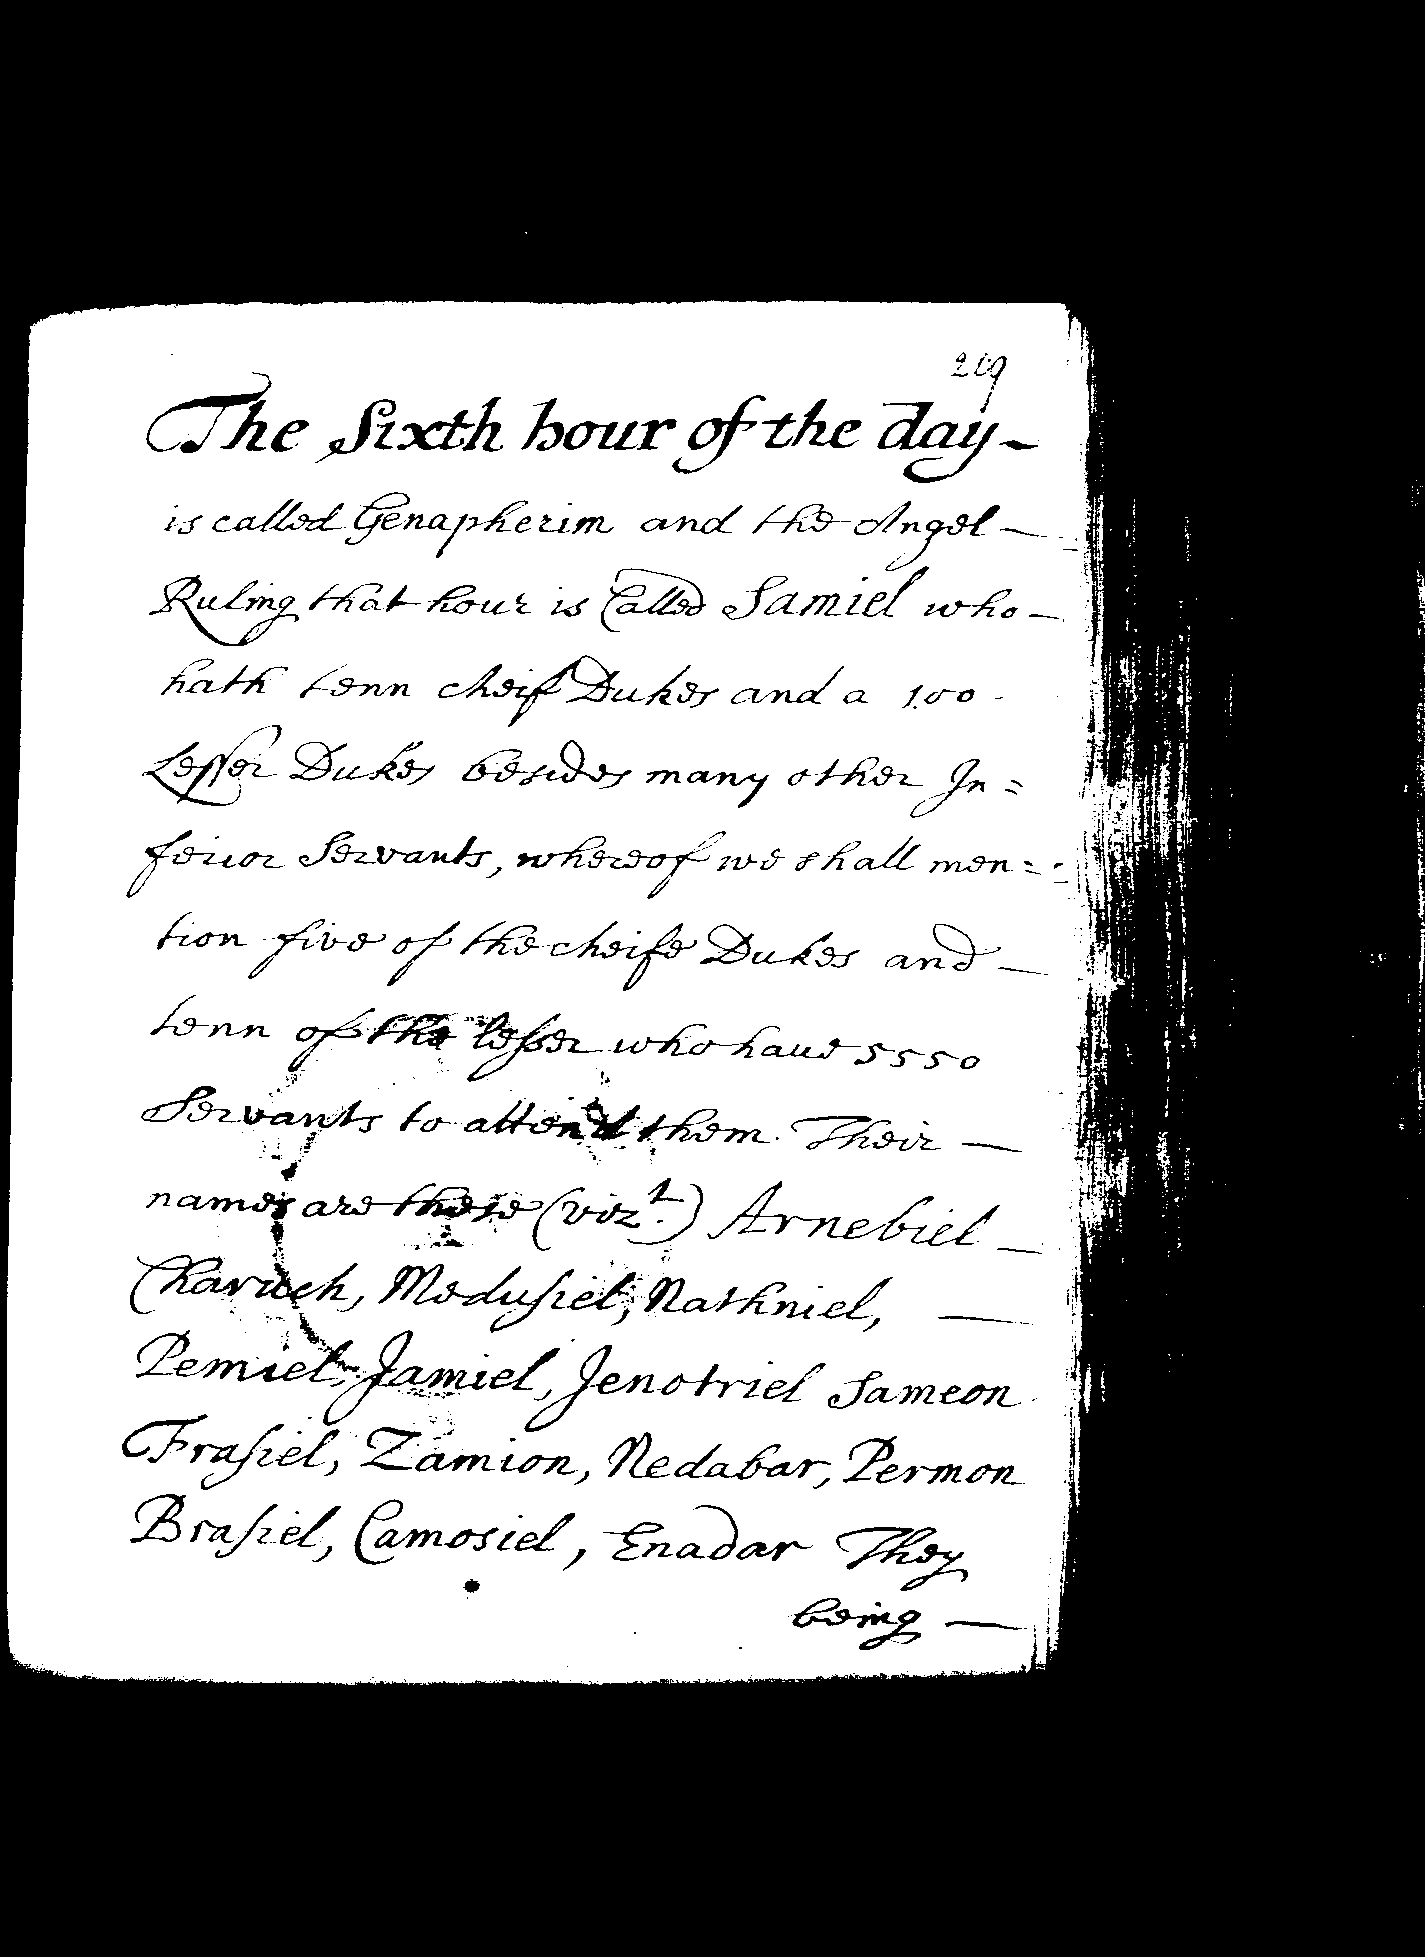 219
The Sixth hour of the day -
is called Genapherim and the Angel -
Ruling that hour is Called Samiel who -
hath tenn cheif Dukes and a 100
Lesser Dukes besides many other In =
ferior Servants, whereof we shall men =
tion five of the cheife Dukes and -
tenn of the lesser who have 5550
Servants to attend them. Their -
names are these (vizt.) Arnebiel -
Charuch, Medusiel, Nathniel, -
Pemiel, Jamiel, Jenotriel Sameon
Frasiel, Zamion, Nedabar, Permon
Brasiel, Camosiel, Enadar They
being -